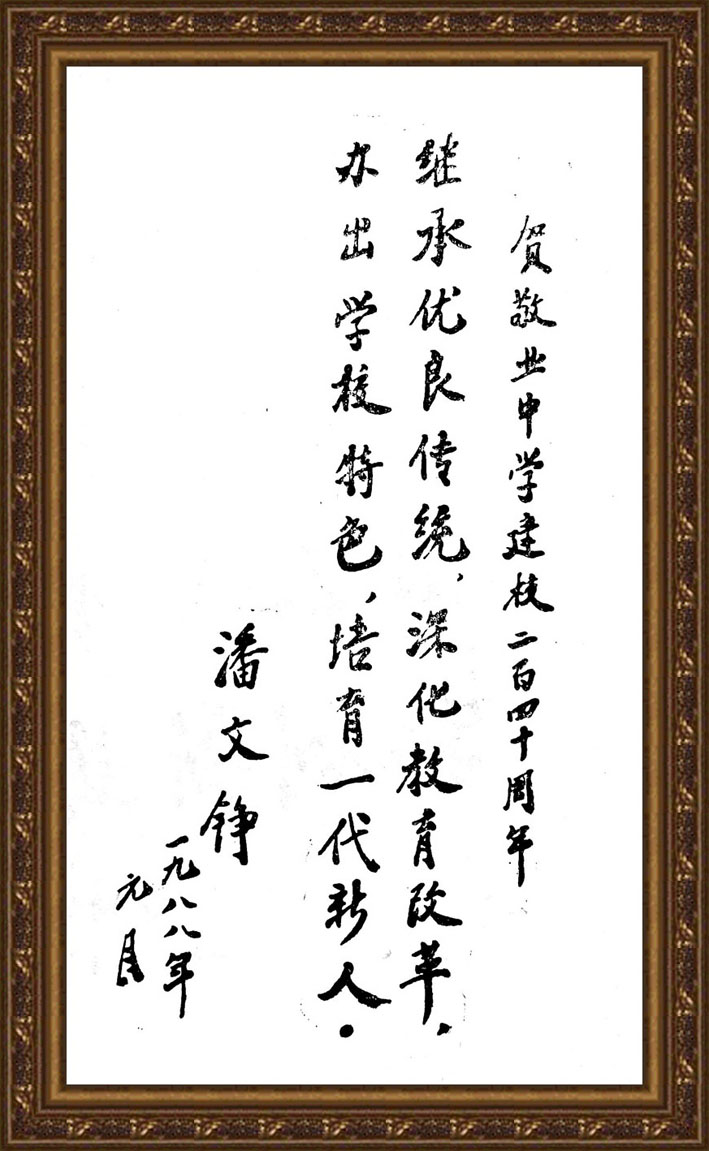 贺敬业中学建校二百四十周年
继承优良传统，深化教育改革，
办出学校特色，培育一代新人。
潘文铮
一九八八年
元月